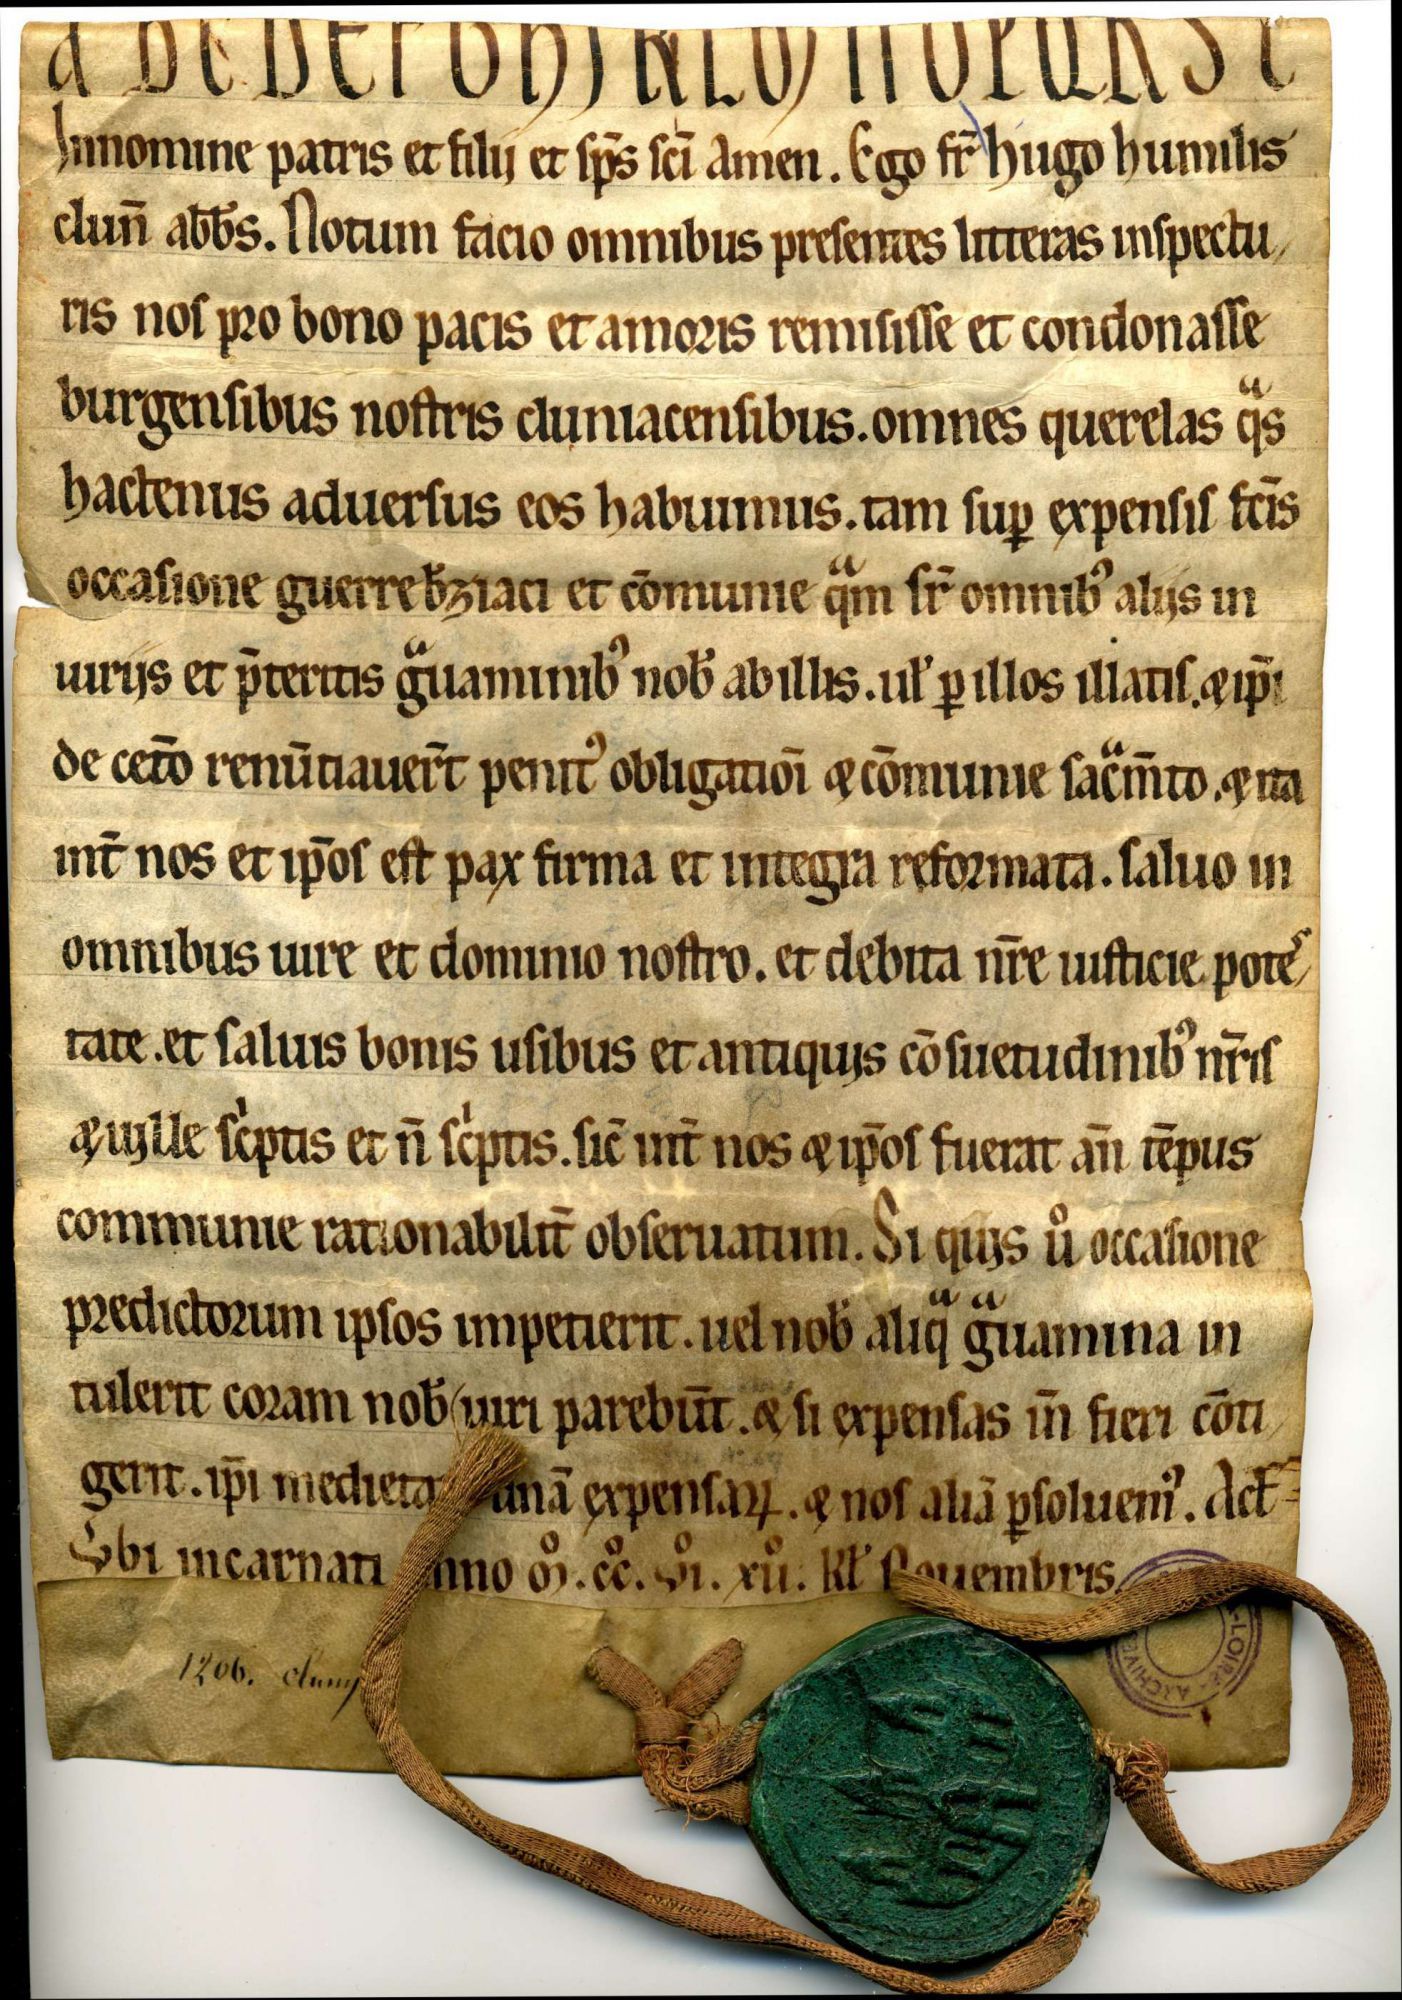 a B C D E F G H J K L M N O P Q R S t
Innomine patris et filij et sp̄s sc̄i Amen. Ego fr̄ hugo humilis
clun̄ abb̄s. Notum facio omnibus presentes litteras inspectu/
ris nos pro bono pacis et amoris remisisse et condonasse
burgensibus nostris cluniacensibus. omnes querelas qͣs
hactenus aduersus eos habuimus. tam sup̲ expensis fc̄is
occasione guerre b̄ziaci et cōmunie qͣm sr̄ omnib᾽ alijs in
iurijs et p̄teritis gͣuaminib᾽ nob̄ ab illis. ul̄ ꝑ illos illatis. ⁊ ip̄i
de cet̄o renūtiauer̄t penit᾽ obligatiōi ⁊ cōmunie sacͣm̄to. ⁊ ita
int̄ nos et ip̄os est pax firma et integra reformata. saluo in
omnibus iure et dominio nostro. et debita nr̄e iusticie poteˢ/
tate. et saluis bonis usibus et antiquis cōsuetudinib᾽ nr̄is
⁊ uille sc̍ptis et n̄ sc̍ptis. sic̄ int̄ nos ⁊ ip̄os fuerat an̄ tēpus
communie rationabilit̄ obseruatum. Si quis uͦ occasione
predictorum ipsos impetierit. uel nob̄ aliqͣ gͣuamina in
tulerit coram nob̄ iuri parebūt. ⁊ si expensas in̄ fieri cōti/
gerit. ip̄i medieta unā expensaꝝ. ⁊ nos aliā ꝑsoluem᾽. Act̄
Vbi incarnati anno mͦ. cͦc. vͦi. xvͦ. kl̄ Nouembris
1206. Cluny